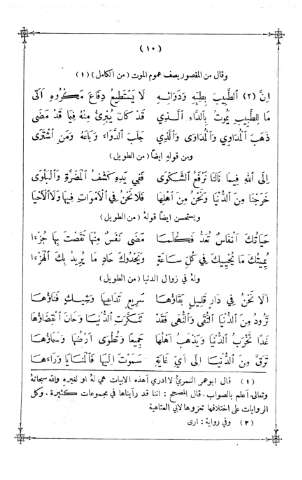 (١٠)
وقال من المقصور يصف عموم الموت (من الكامل) (١)
إِنَّ (٢) الطَّبِيبَ بِطِبِّهِ وَدَوَائِهِ لَا يَسْتَطِيعُ دِفَاعَ مَكْرُوهٍ أَتَى
مَا لِلطَّبِيبِ يَمُوتُ بِالدَّاءِ الَّذِي قَدْ كَانَ يُبْرِئُ مِنْهُ فِيمَا قَدْ مَضَى
ذَهَبَ الْمُدَاوِي وَالْمُدَاوَى وَالَّذِي جَلَبَ الدَّوَاءَ وَبَاعَهُ وَمَنِ اشْتَرَى
ومن قوله ايضًا (من الطويل)
إِلَى اللهِ فِيمَا نَالَنَا نَرْفَعُ الشَّكْوَى فَفِي يَدِهِ كَشْفُ الْمَضَرَّةِ وَالْبَلْوَى
خَرَجْنَا مِنَ الدُّنْيَا وَنَحْنُ مِنْ أَهْلِهَا فَلَا نَحْنُ فِي الْأَمْوَاتِ فِيهَا وَلَا الْأَحْيَا
ويستحسن ايضًا قوله (من الطويل)
حَيَاتُكَ أَنْفَاسٌ تُعَدُّ فَكُلَّمَا مَضَى نَفَسٌ مِنْهَا نَقَصْتَ بِهَا جُزْءَا
يُمِيتُكَ مَا يُحْيِيكَ فِي كُلِّ سَاعَةٍ وَيَحْدُوكَ حَادٍ مَا يُرِيدُ بِكَ الْهُزْءَا
وله في زوال الدنيا (من الطويل)
أَلَا نَحْنُ فِي دَارٍ قَلِيلٍ بَقَاؤُهَا سَرِيعٍ تَدَاعِيهَا وَشِيكٍ فَنَاؤُهَا
تَزَوَّدْ مِنَ الدُّنْيَا التُّقَى وَالنُّهَى فَقَدْ تَنَكَّرَتِ الدُّنْيَا وَحَانَ انْقِضَاؤُهَا
غَدًا تَخْرَبُ الدُّنْيَا وَيَذْهَبُ أَهْلُهَا جَمِيعًا وَتُطْوَى أَرْضُهَا وَسَمَاؤُهَا
تَرَقَّ مِنَ الدُّنْيَا إِلَى أَيِّ غَايَةٍ سَمَوْتَ إِلَيْهَا فَالْمَنَايَا وَرَاءَهَا
(١) قال ابو عمر النمري: لا ادري أهذه الابيات هي لهُ او لغيره والله سبحانه
وتعالى أعلم بالصواب. قال المصحح: اننا قد رأيناها في مجموعات كثيرة. وكل
الروايات على اختلافها تعزوها لابي العتاهية
(٢) وفي رواية: ارى